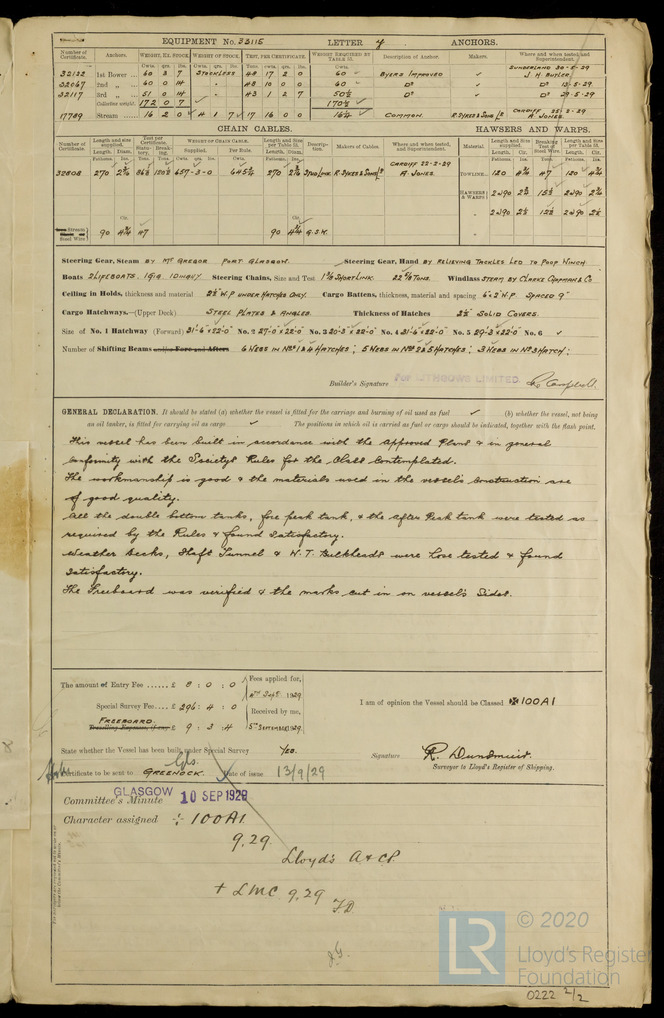 EQUIPMENT No. 33115 LETTER y ANCHORS.
Number of Certificate. Anchors. WEIGHT, EX. STOCK. WEIGHT OF STOCK. TEST, PER CERTIFICATE. WEIGHT REQUIRED BY TABLE 31. Description of Anchor. Makers. Where and when tested and Superintendent.
Cwts. qrs. lbs. Cwts. qrs. lbs. Tons. cwts. qrs. lbs. Cwts.
SUNDERLAND 30-5-29
32122 1st Bower ... 60 3 7 STOCKLESS 48 17 2 0 60 BYERS IMPROVED ✓ J. H. BUTLER.
32067 2nd „ ... 60 0 14 48 10 0 0 60 Do ✓ Do 13-5-29
32117 3rd „ ... 51 0 14 43 1 2 7 50½ Do ✓ Do 29-5-29
Collective weight. 172 0 7 170½
CARDIFF 25-2-29
17789 Stream ... 16 2 0 4 1 7 17 16 0 0 16¼ COMMON R. SYKES & SONS A. JONES.
CHAIN CABLES. HAWSERS AND WARPS.
Number of Certificate Length and size supplied. Test per Certificate. WEIGHT OF CHAIN CABLE. Length and Size per Table 31. Description. Makers of Cables Where and when tested, and Superintendent. Material. Length and Size supplied. Breaking Test of Steel Wire. Length and Size per Table 31.
Length. Diam. Statutory. Breaking. Supplied. Per Rule. Length. Diam. Length. Cir. Length. Cir.
Fathoms. Ins. Tons. Tons. Cwts. qrs. lbs. Cwts. Fathoms. Ins. Fathoms. Ins. Tons. Fathoms. Ins.
CARDIFF 22-2-29
32808 270 657-3-0 645¼ 270 STUD LINK R. SYKES & SONS A. JONES. TOWLINE.. 120 4¾ 47 120 4¾
HAWSERS & WARPS 2@90 2¾ 15½ 2@90 2¾
2@90 2½ 2@90 2½
Stream Steel Wire 90 4¾ 47 90 4¾ G.S.W.
Steering Gear, Steam BY McGREGOR PORT GLASGOW. Steering Gear, Hand BY RELIEVING TACKLES LED TO POOP WINCH
Boats 2 LIFEBOATS. 1 GIG 1 DINGHY Steering Chains, Size and Test 1⅛ SHORT LINK. TONS. Windlass STEAM BY CLARKE CHAPMAN & Co
Ceiling in Holds, thickness and material 2½ W.P UNDER HATCHES ONLY. Cargo Battens, thickness, material and spacing 6 x 2 W.P SPACED 9"
Cargo Hatchways.—(Upper Deck) STEEL PLATES & ANGLES. Thickness of Hatches 2½ SOLID COVERS.
Size of No. 1 Hatchway (Forward) 31'-6 x 22'-0" No. 2 27-0 x 22-0 No. 3 20-3 x 22-0 No. 4 31-6 x 22-0 No. 5 29-3 x 22-0 No. 6 ✓
Number of Shifting Beams and/or Fore and Afters 6 WEBS IN Nos 1 & 4 HATCHES; 5 WEBS IN Nos 2 & 5 HATCHES; 3 WEBS IN No 3 HATCH;
Builder's Signature FOR LITHGOWS LIMITED. Campbell
GENERAL DECLARATION. It should be stated (a) whether the vessel is fitted for the carriage and burning of oil used as fuel ✓ (b) whether the vessel, not being
an oil tanker, is fitted for carrying oil as cargo ✓ The positions in which oil is carried as fuel or cargo should be indicated, together with the flash point.
This vessel has been built in accordance with the approved Plans & in general
conformity with the Society's Rules for the Class contemplated.
The workmanship is good & the materials used in the vessel's construction are
of good quality.
All the double bottom tanks, fore peak tank, & the after Peak tank were tested as
required by the Rules & found Satisfactory.
Weather decks, Shaft Tunnel & W.T. Bulkheads were hose tested & found
Satisfactory.
The Freeboard was verified & the marks cut in on vessel's Sides.
The amount of Entry Fee ...... £ 8 : 0 : 0 Fees applied for, 4th Sept. 1929.
Special Survey Fee... £ 296 : 4 : 0 Received by me, I am of opinion the Vessel should be Classed ✠100A1
FREEBOARD
Travelling Expenses, if any, £ 9 : 3 : 4 5th SEPTEMBER 1929.
State whether the Vessel has been built under Special Survey Yes. Signature R. Dunsmuir.
Surveyor to Lloyd's Register of Shipping.
Gls.
Certificate to be sent to GREENOCK. Date of issue 13/9/29
GLASGOW 10 SEP 1929
Committee's Minute
Character assigned + 100A1
9.29.
Lloyd's A & CP.
+ LMC 9.29
F.D.
© 2020
LR
Lloyd's Register
Foundation
0222 2/2